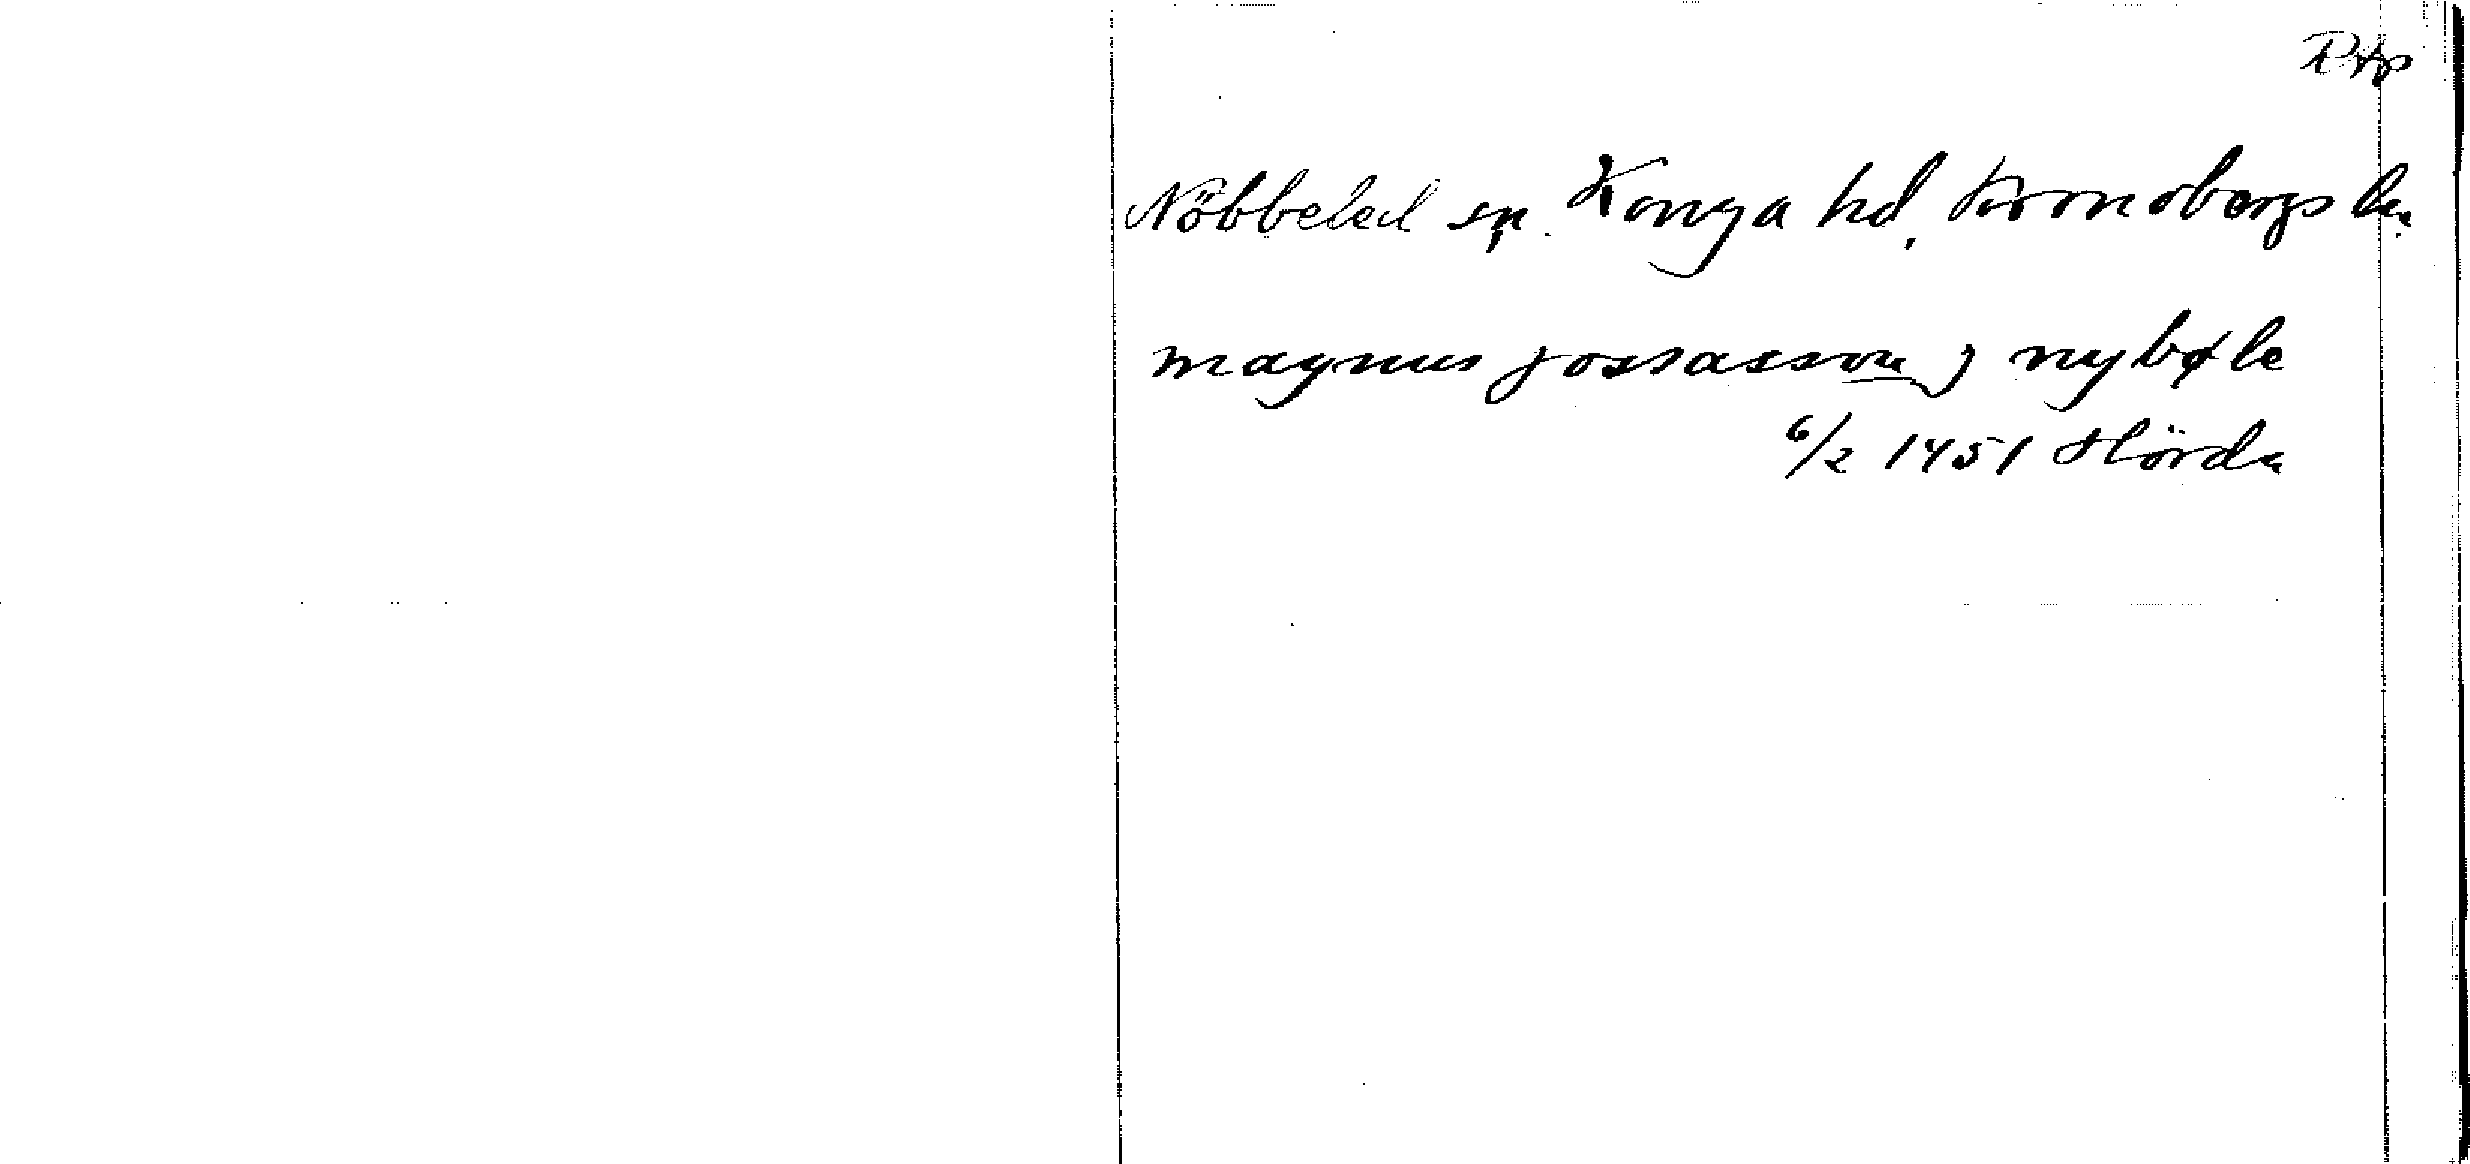 Prp
Nöbbeled sn. Konga hd, Kronobergs län
magnus jossasson j nybøle
6/2 1451 Hörda